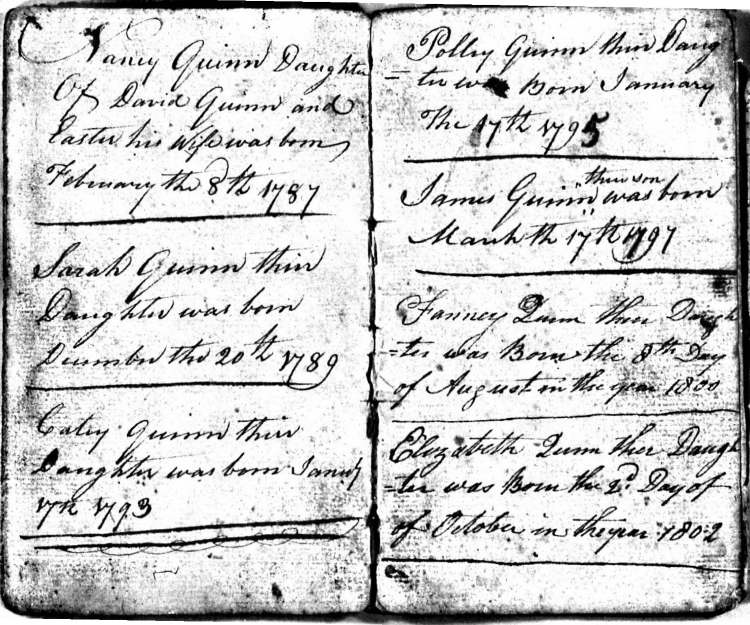 Nancy Quinn Daughter
Of David Quinn and
Easter his wife was born
February the 8th 1787
Sarah Quinn thier
Daughter was born
December the 20th 1789
Catey Quinn thier
Daughter was born Janury
17th 1793
Polley Quinn thier Daug
=ter was Born January
The 17th 1795
thier son
James Quinn " was born
March th 17th 1797
Fanney Qunn ther Daugh
=ter was Born the 8th Day
of August in the year 1800
Elizabeth Qunn ther Daugh
=ter was Born the 2d Day of
of October in the year 1802